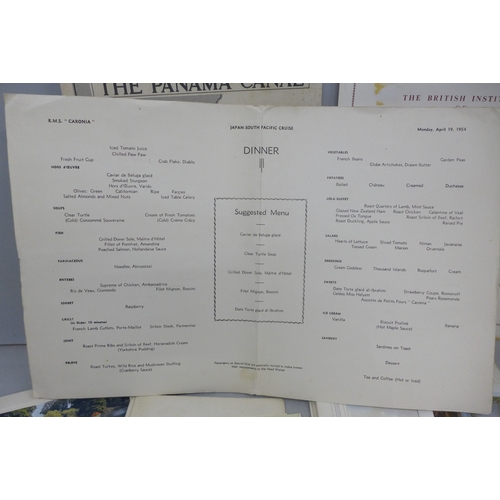 THE PANAMA CANAL
THE BRITISH INSTIT
R.M.S. "CARONIA"
JAPAN-SOUTH PACIFIC CRUISE
Monday, April 19, 1954
DINNER
Iced Tomato Juice
Chilled Paw Paw
Fresh Fruit Cup
Crab Flake, Diablo
HORS D'ŒUVRE
Caviar de Beluga glacé
Smoked Sturgeon
Hors d'Œuvre, Varié
Olives: Green Californian Ripe Farcies
Salted Almonds and Mixed Nuts Iced Table Celery
SOUPS
Clear Turtle Cream of Fresh Tomatoes
(Cold) Consommé Souveraine (Cold) Crème Crécy
FISH
Grilled Dover Sole, Maître d'Hôtel
Fillet of Pomfret, Amandine
Poached Salmon, Hollandaise Sauce
FARINACEOUS
Noodles,
ENTREES
Suprême of Chicken, Ambassadrice
Ris de Veau, Filet Mignon, Rossini
SORBET
Raspberry
GRILL
(to Order: 10 minutes)
French Lamb Cutlets, Sirloin Steak,
JOINT
Roast Prime Ribs and Sirloin of Beef, Horseradish Cream
(Yorkshire Pudding)
Roast Turkey, Wild Rice and Mushroom Stuffing
(Cranberry Sauce)
Suggested Menu
Caviar de Beluga glacé
Clear Turtle Soup
Grilled Dover Sole, Maître d'Hôtel
Filet Mignon, Rossini
Date Torte glacé al Ibrahim
VEGETABLES
French Beans Garden Peas
Globe Artichokes, Drawn Butter
POTATOES
Boiled Château Creamed Duchesse
COLD BUFFET
Roast Quarters of Lamb, Mint Sauce
Glazed New Zealand Ham Roast Chicken Galantine of Veal
Pressed Ox Tongue Roast Sirloin of Beef,
Roast Duckling, Apple Sauce Raised Pie
SALADS
Hearts of Lettuce Sliced Tomato
Tossed Green
DRESSINGS
Green Goddess Thousand Islands Roquefort Cream
SWEETS
Date Torte glacé al Ibrahim Strawberry Coupe, Romanoff
Gâteau Miss Helyett
ICE CREAM
Vanilla Biscuit Praliné Banana
(Hot Maple Sauce)
SAVOURY
Sardines on Toast
Dessert
Tea and Coffee (Hot or Iced)